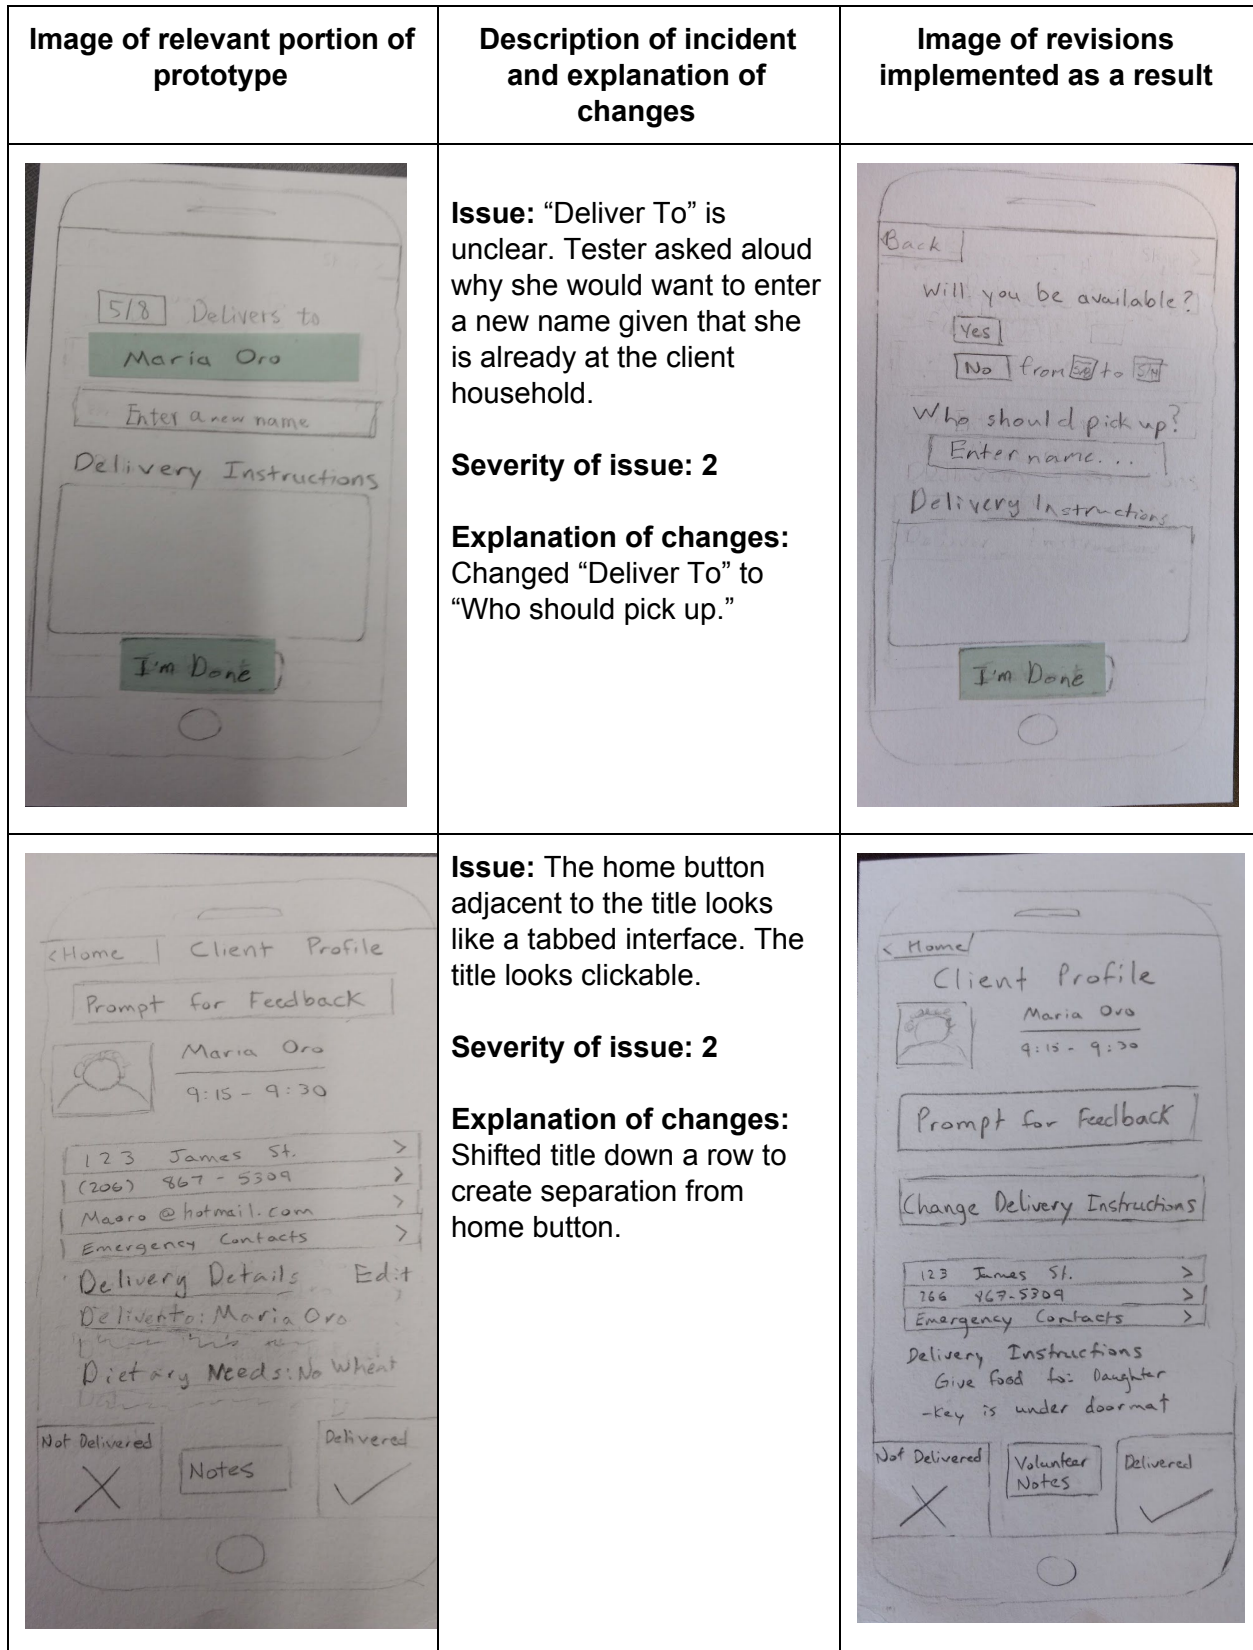 Image of relevant portion of
prototype
Description of incident
and explanation of
changes
Image of revisions
implemented as a result
5/8 Delivers to
Maria Oro
Enter a new name
Delivery Instructions
I'm Done
Issue: “Deliver To” is
unclear. Tester asked aloud
why she would want to enter
a new name given that she
is already at the client
household.
Severity of issue: 2
Explanation of changes:
Changed “Deliver To” to
“Who should pick up.”
Back
Skip >
Will you be available?
Yes
No from to
Who should pick up?
Enter name...
Delivery Instructions
I'm Done
<Home Client Profile
Prompt for Feedback
Maria Oro
9:15 - 9:30
123 James St. >
(206) 867-5309 >
Maoro@hotmail.com >
Emergency Contacts >
Delivery Details Edit
Deliver to: Maria Oro
Dietary Needs: No Wheat
Not Delivered
Notes
Delivered
Issue: The home button
adjacent to the title looks
like a tabbed interface. The
title looks clickable.
Severity of issue: 2
Explanation of changes:
Shifted title down a row to
create separation from
home button.
< Home
Client Profile
Maria Oro
9:15 - 9:30
Prompt for Feedback
Change Delivery Instructions
123 James St. >
867-5309 >
Emergency Contacts >
Delivery Instructions
Give food to: Daughter
-Key is under doormat
Not Delivered
Volunteer
Notes
Delivered